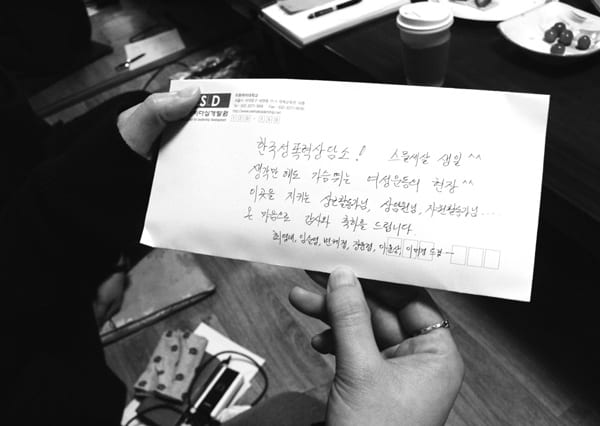 SD
한국성폭력상담소! 스물세살 생일 ^^
생각만 해도 가슴뛰는 여성운동의 현장 ^^
이곳을 지키는 상근활동가님, 상담원님, 자원활동가님....
온 마음으로 감사와 축하를 드립니다.
최영애, 임순영, 변혜정, 이윤상, 이미경 드림